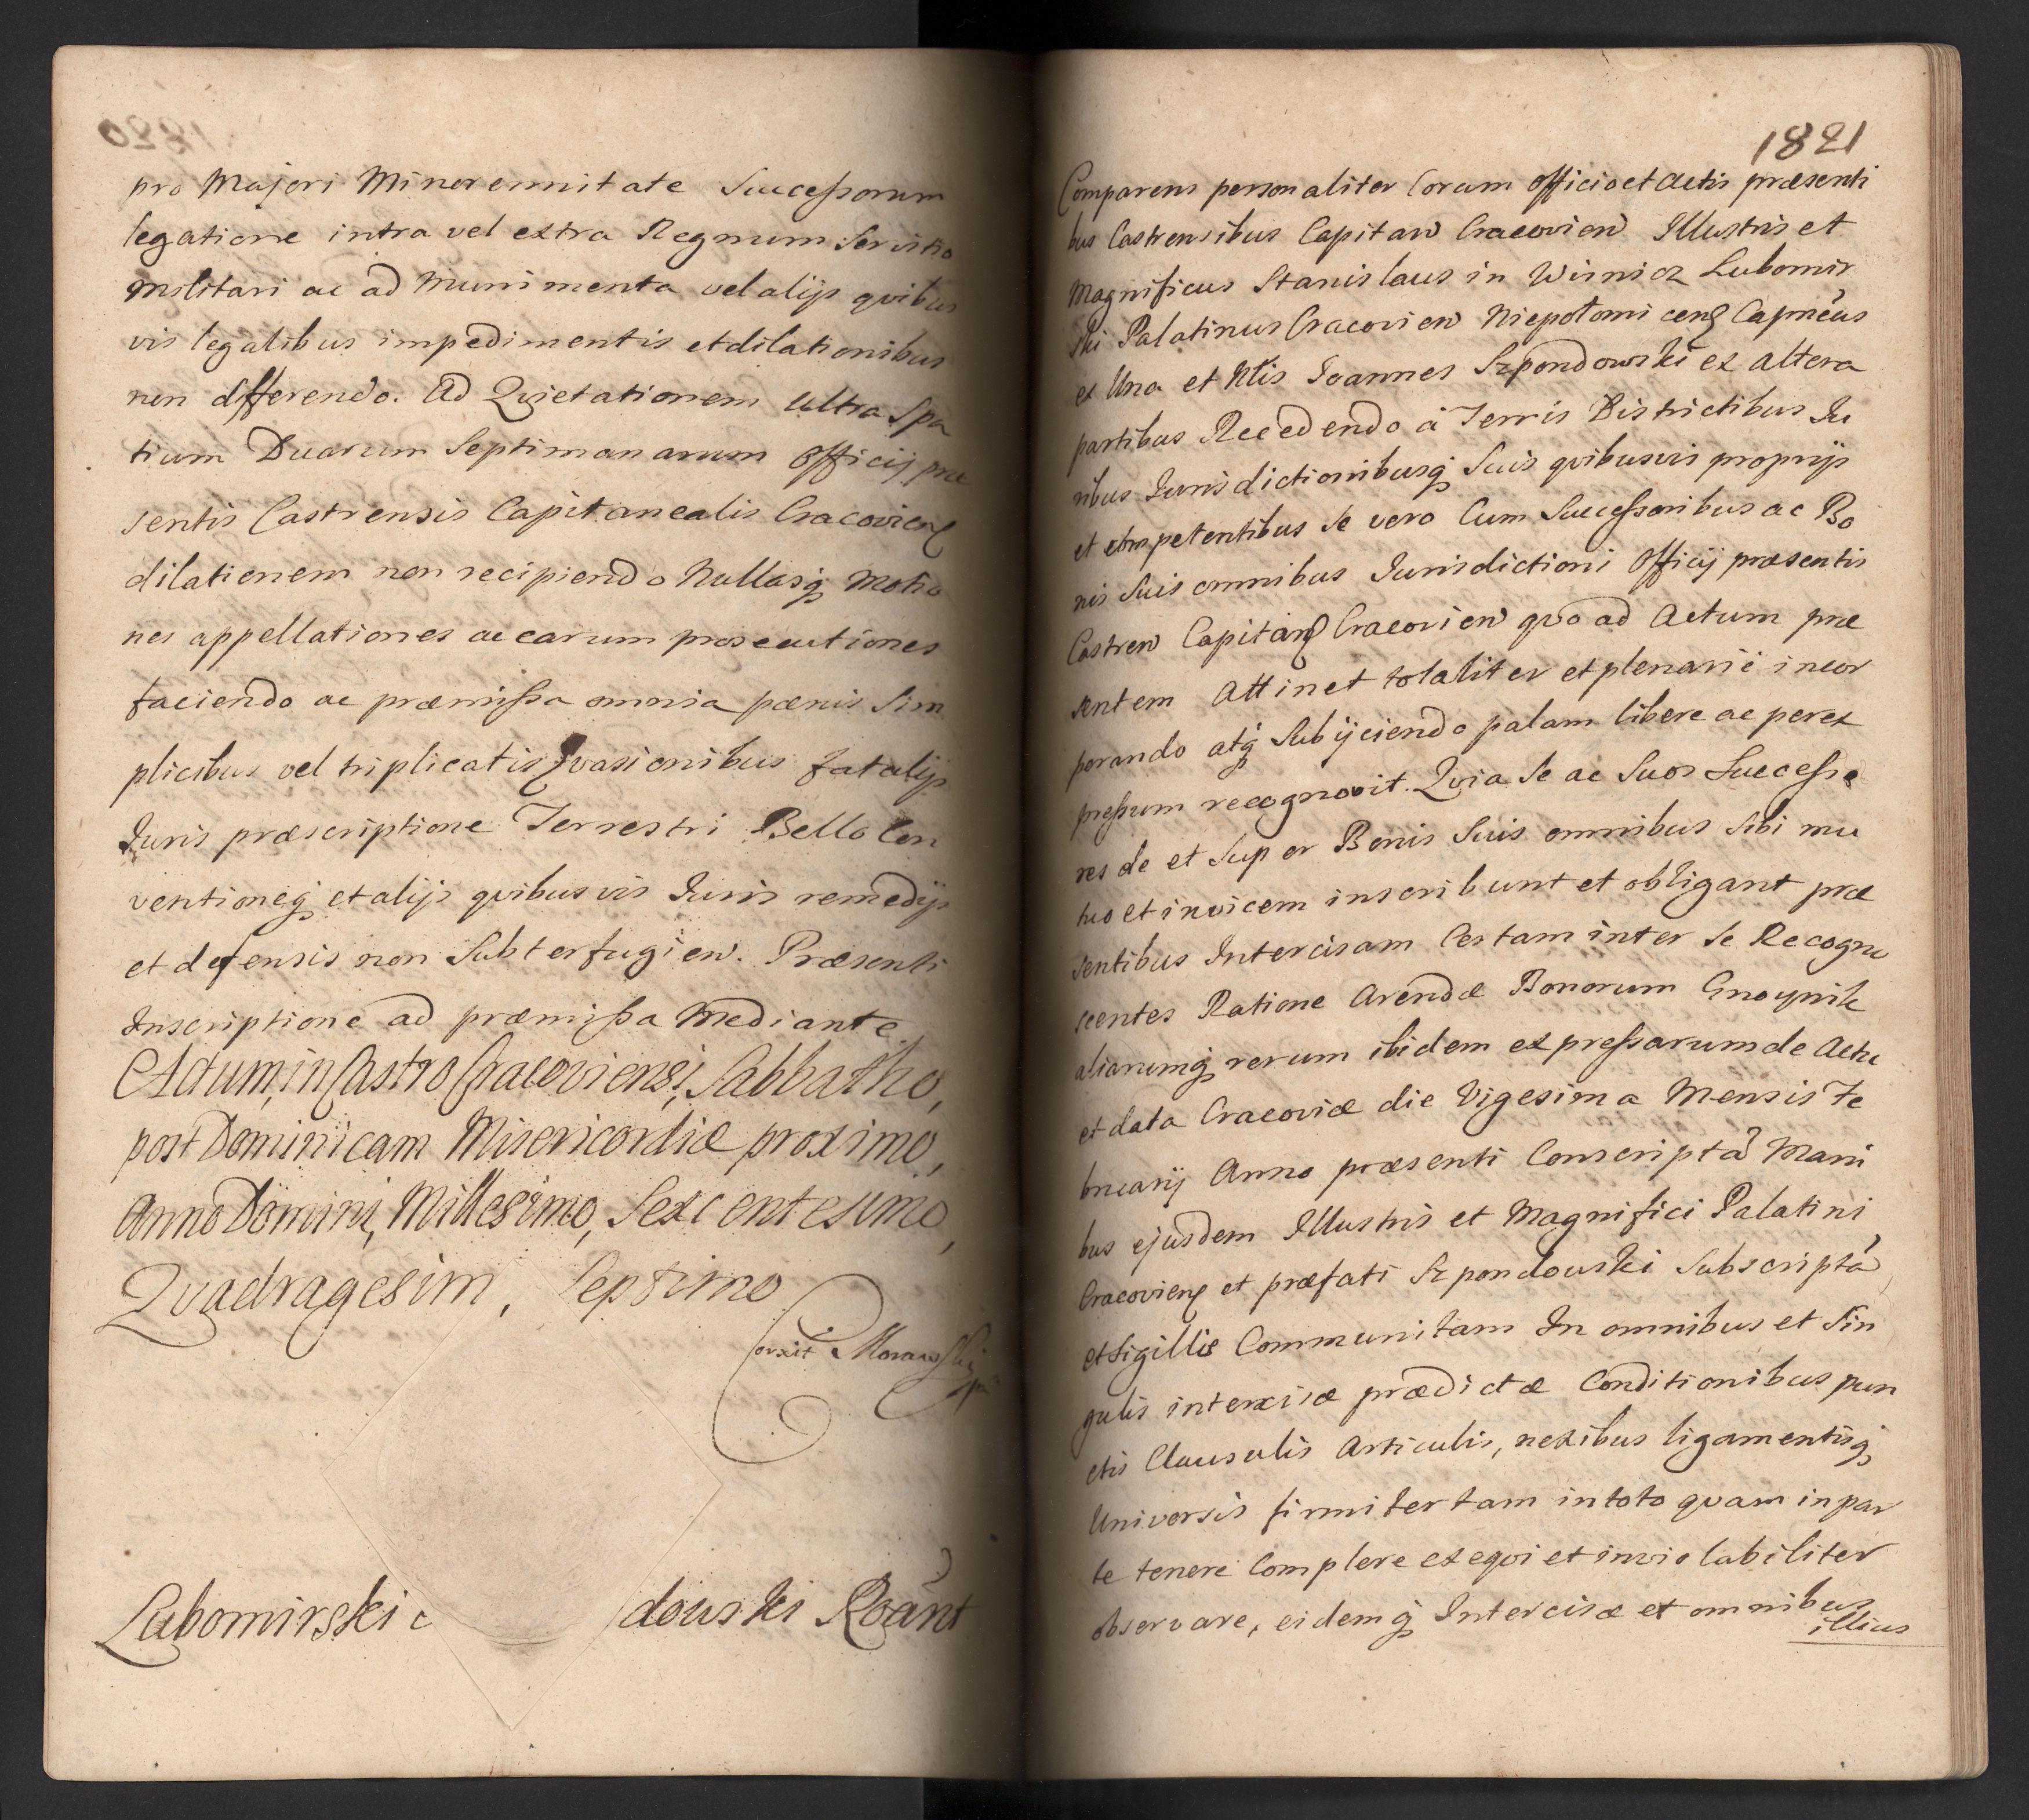 pro Majori Minorennitate Successorum
legatione intra vel extra Regnum Servitio
militari ac ad Munimenta vel alijs quibus
vis legalibus impedimentis et dilationibus
non differendo. Ad Quietationem ultra Spa
tium Duarum Septimanarum Officij præ
sentis Castrensis Capitanealis Cracovien
dilationem non recipiendo Nullasq Motio
nes appellationes ac earum prosecutiones
faciendo ac præmissa omnia pœnis Sim
plicibus vel triplicatis Evasionibus fatalijs
Juris præscriptione Terrestri Bello Con
ventioneq et alijs quibusvis Juris remedijs
et defensis non Subterfugien. Præsenti
Inscriptione ad præmissa Mediante
Actum, in Castro Cracoviensi, Sabbatho,
post Dominicam Misericordiæ proximo,
Anno Domini, Millesimo, Sexcentesimo,
Quadragesim, Septimo
Corxit Morawski
Lubomirski douski Roânt
1821
Comparens personaliter Coram Officio et Actis præsenti
bus Castrensibus Capitan Cracovien Illustris et
Magnificus Stanislaus in Wisnicz Lubomir
ski Palatinus Cracovien Niepolomicen Capneus
ex Una et Nlis Joannes Szpondowski ex altera
partibus Recedendo à Terris Districtibus Ju
ribus Jurisdictionibusq Suis quibusvis proprijs
et competentibus Se vero Cum Successoribus ac Bo
nis Suis omnibus Jurisdictioni Officij præsentis
Castren Capitan Cracovien quo ad Actum præ
sentem Attinet totaliter et plenarie incor
porando atq Subijciendo palam libere ac perex
pressum recognovit. Quia Se ac Suos Successo
res de et Super Bonis Suis omnibus Sibi mu
tuo et invicem inscribunt et obligant præ
sentibus Intercisam Certam inter Se Recogno
scentes Ratione Arendæ Bonorum Gnoynik
aliarumq rerum ibidem expressarum de Actu
et data Cracoviæ die Vigesima Mensis Fe
bruarij Anno præsenti Conscriptâ Mani
bus ejusdem Illustris et Magnifici Palatini
Cracovien et præfati Szpondouski Subscriptâ
et Sigillis Communitam In omnibus et Sin
gulis intercisæ prædictæ Conditionibus pun
ctis Clausulis Articulis, nexibus ligamentisq
Universis firmiter tam in toto quam in par
te tenere Complere exequi et inviolabiliter
observare, eidemq Intercisæ et omnibus
illius